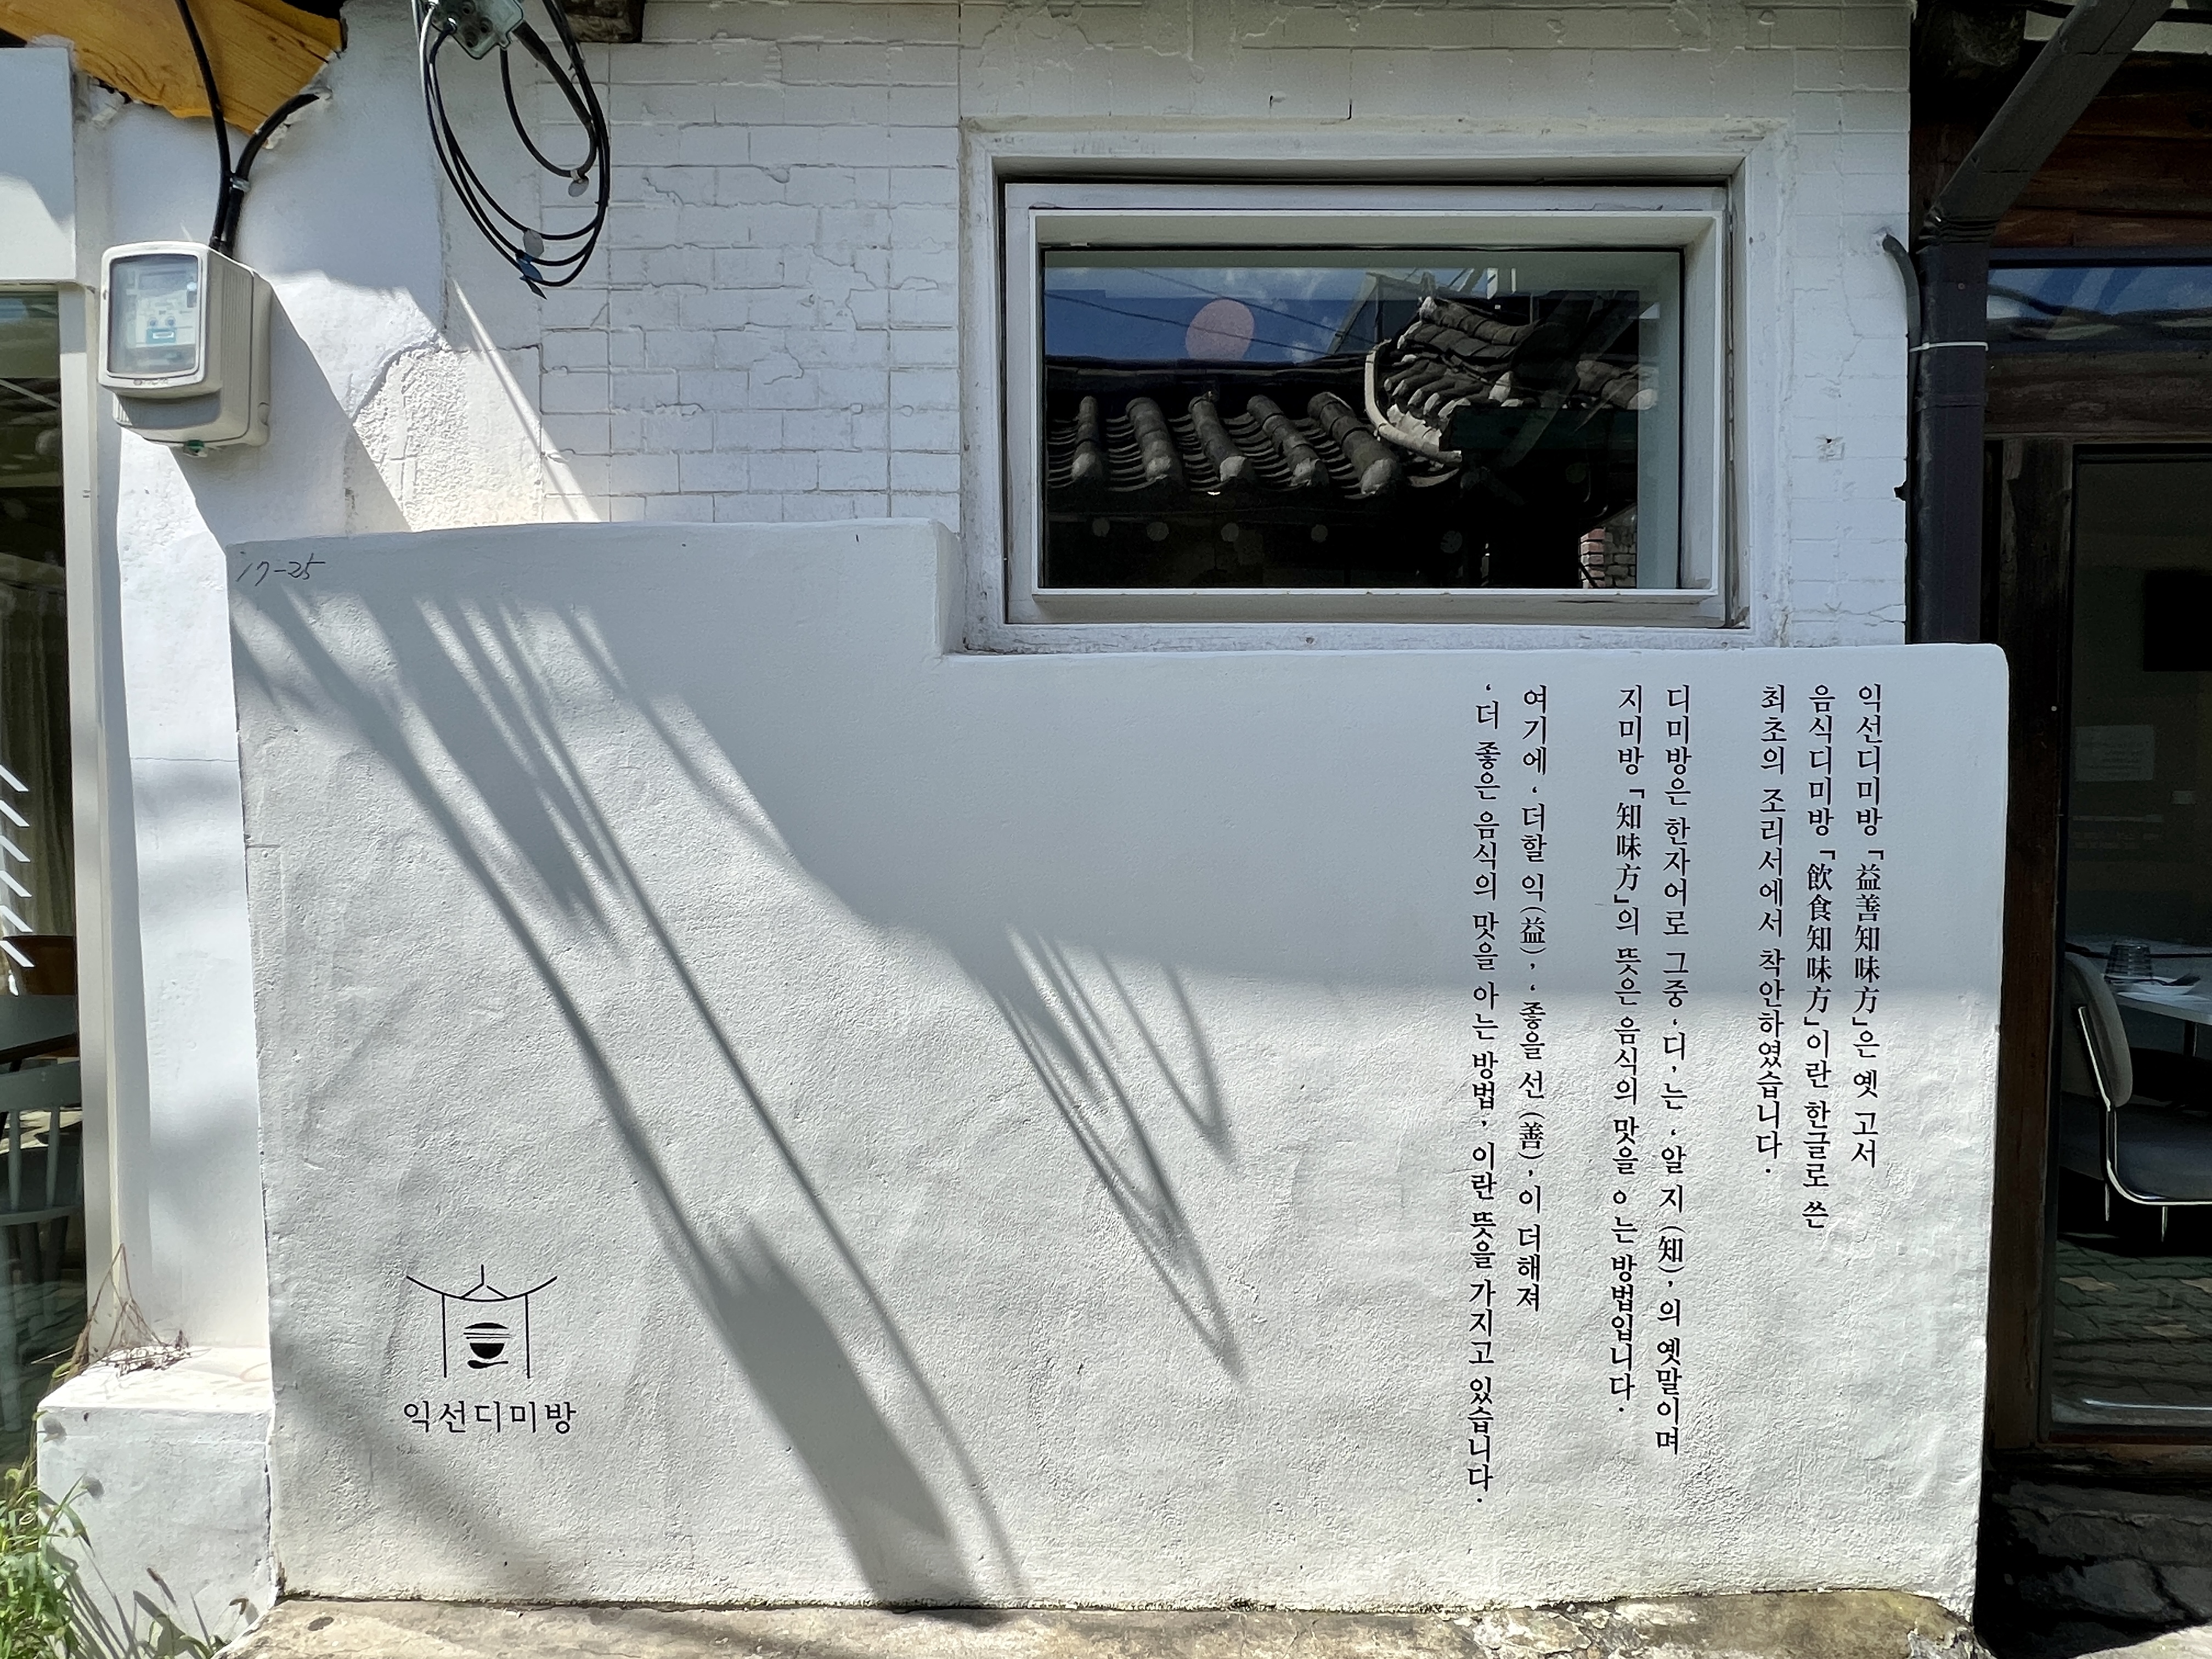 익선디미방「益善知味方」은 옛 고서
음식디미방「飮食知味方」이란 한글로 쓴
최초의 조리서에서 착안하였습니다.
디미방은 한자어로 그중 ‘디’는 ‘알 지(知)’의 옛말이며
지미방「知味方」의 뜻은 음식의 맛을 ㅇ는 방법입니다.
여기에 ‘더할 익(益)’, ‘좋을 선(善)’이 더해져
‘더 좋은 음식의 맛을 아는 방법’이란 뜻을 가지고 있습니다.
17-25
익선디미방